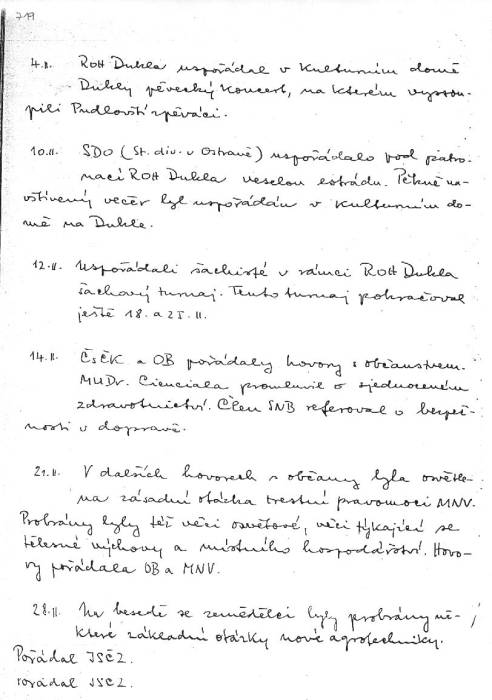 719
4.II. ROH Dukla uspořádal v Kulturním domě
Dukly pěvecký koncert, na kterém vystou-
pili Prudlovští zpěváci.
10.II. SDO (St. div. v Ostravě) uspořádalo pod patro-
nací ROH Dukla veselou estrádu. Pěkně na-
vštívený večer byl uspořádán v Kulturním do-
mě na Dukle.
12.II. Uspořádali šachisté v rámci ROH Dukla
šachový turnaj. Tento turnaj pokračoval
ještě 18. a 25. II.
14.II. ČsČK a OB pořádaly hovory s občanstvem.
MUDr. Cienciala promluvil o sjednoceném
zdravotnictví. Člen SNB referoval o bezpeč-
nosti v dopravě.
21.II. V dalších hovorech s občany byla osvětle-
na zásadní otázka trestní pravomoci MNV.
Probrány byly též věci osvětové, věci týkající se
tělesné výchovy a místního hospodářství. Hovo-
ry pořádala OB a MNV.
28.II. Na besedě se zemědělci byly probrány ně-
které základní otázky nové agrotechniky.
Pořádal JSČZ.
pořádal JSČZ.